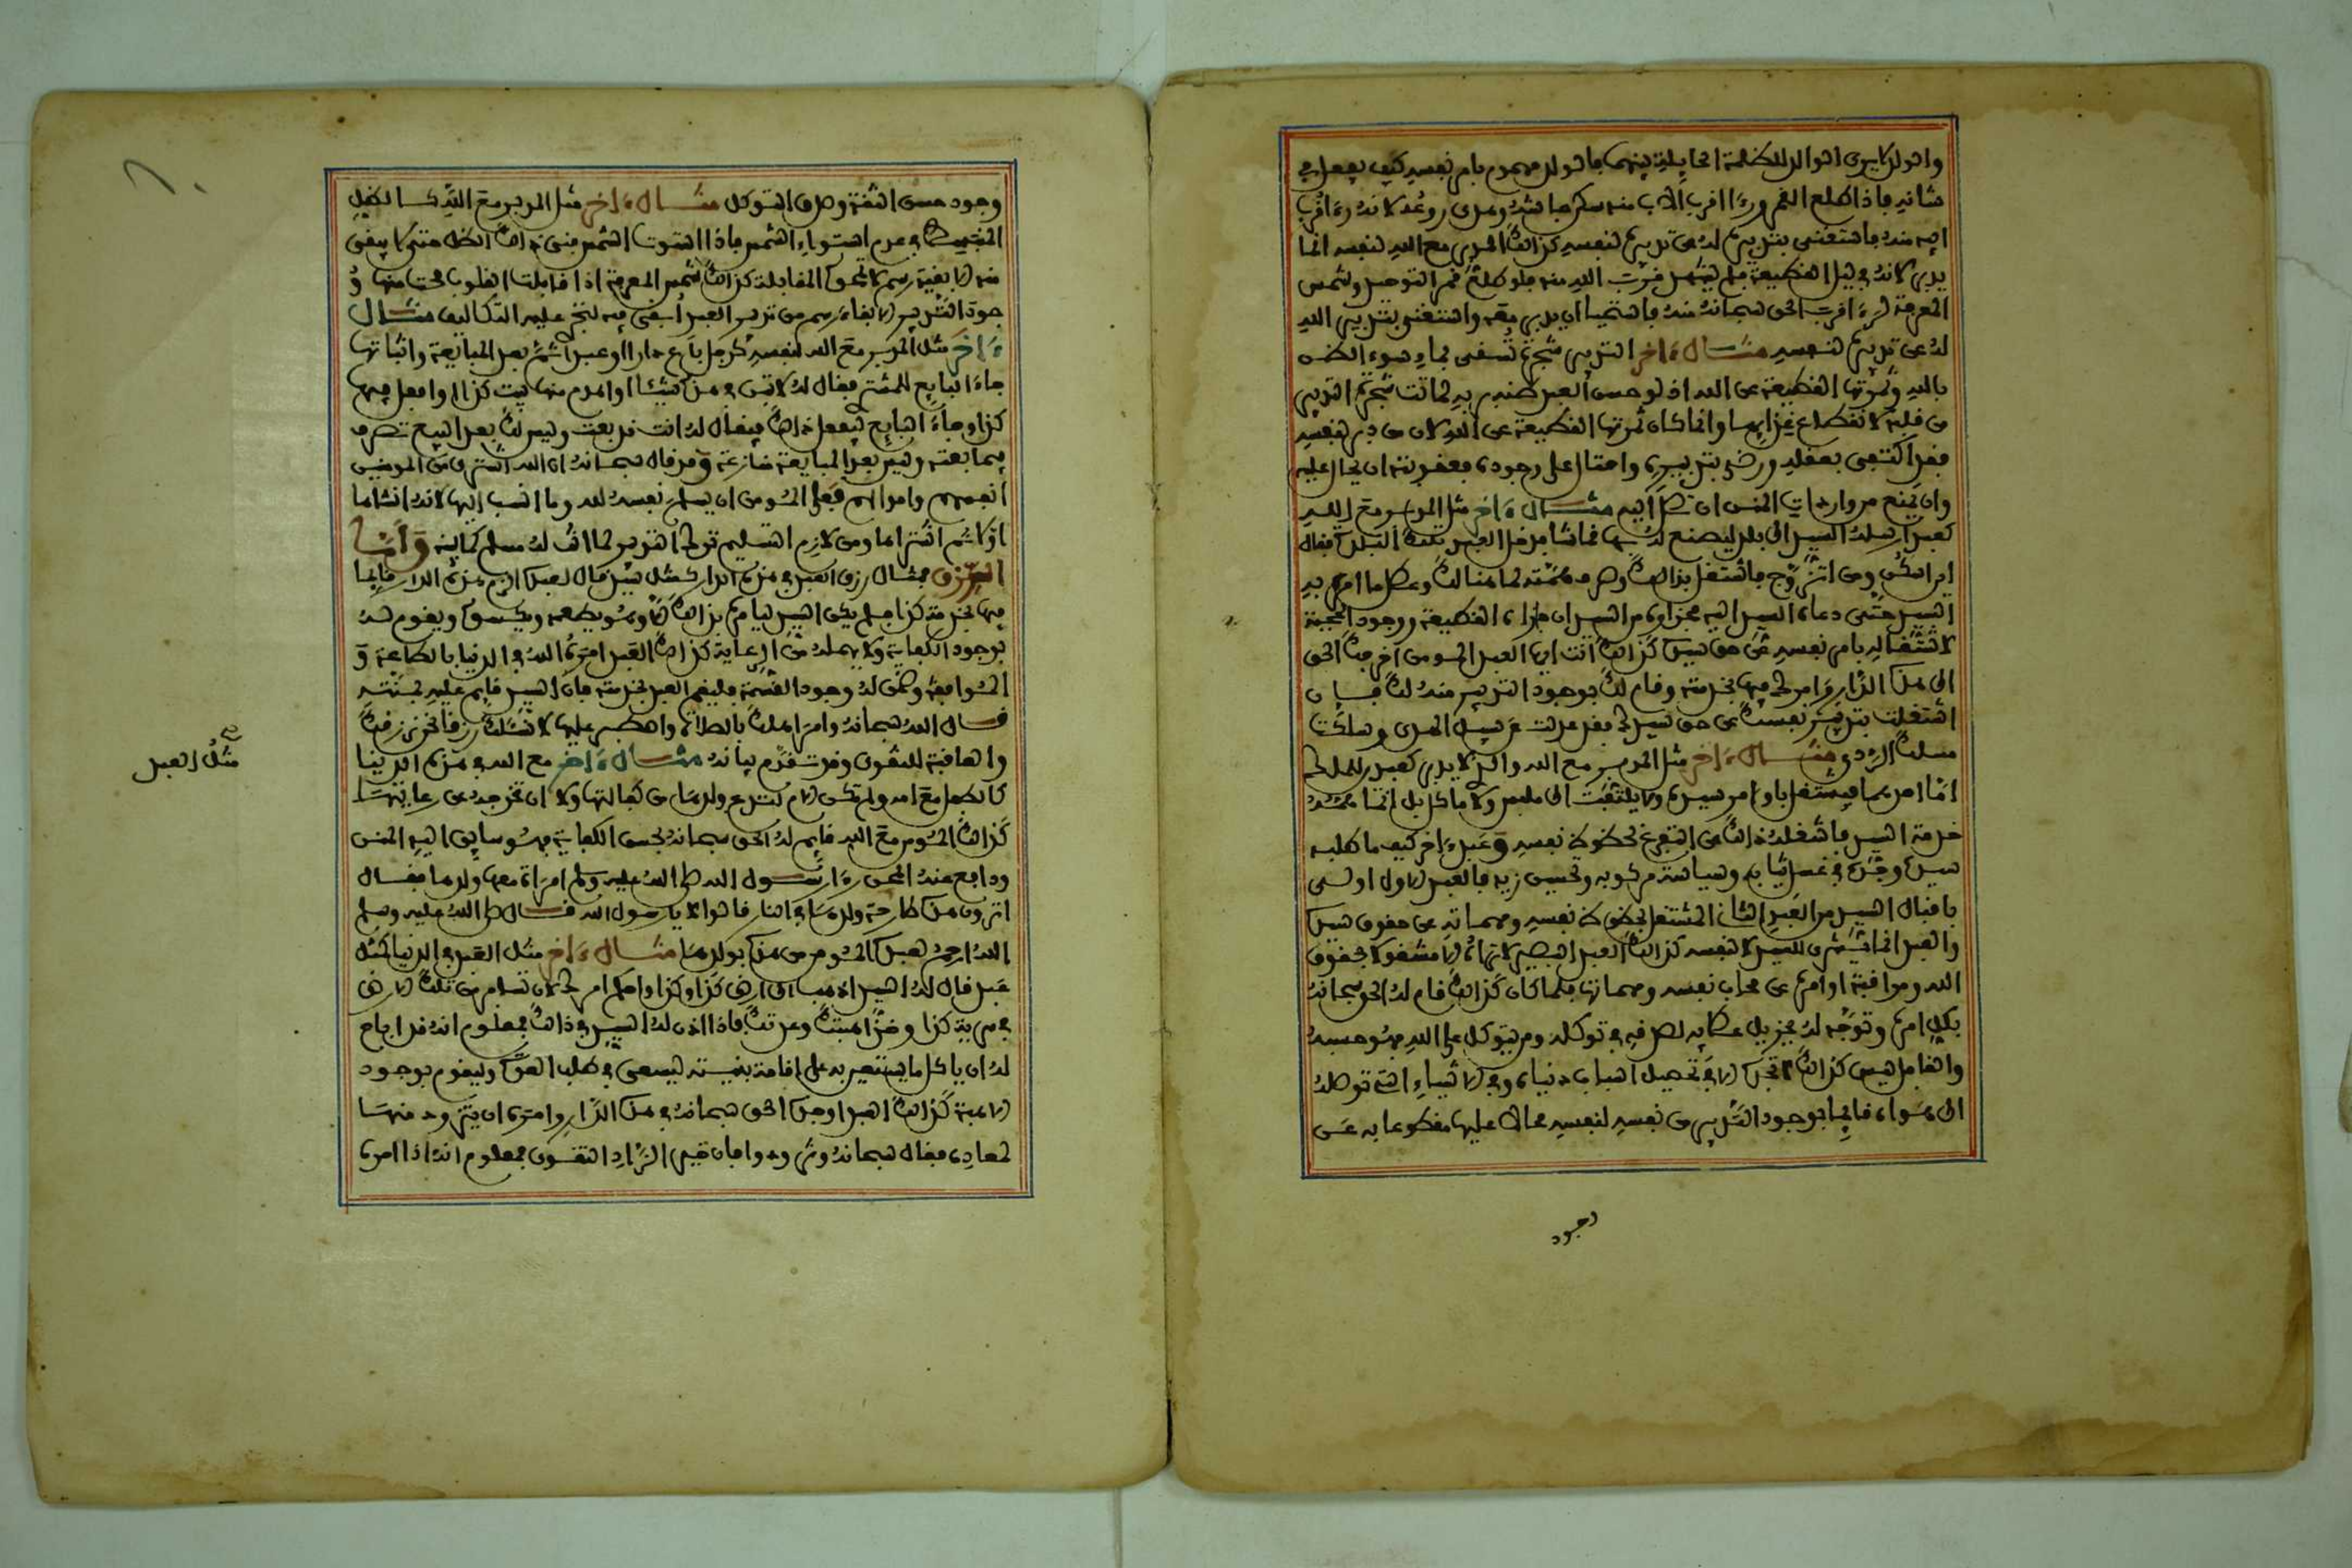 والولد لا يرى الوالد للظلمة الحايلة بينهما فالولد مهموم بامر نفسه كيف يفعل في
شانه فاذا طلع القمر ورءا اقرب الاب منه سكن جاشه وهدى روعه لانه رءا قرب
ابيه منه فاستغنى بتدبيره له عن تدبيره لنفسه كذلك المدبر مع الله لنفسه انما
يدبر لانه في ليل القطيعة فلم يشهد قرب الله منه فلو طلع قمر التوحيد وشمس
المعرفة لرءا قرب الحق سبحانه منه فاستحيا ان يدبر معه واستغنى بتدبير الله
له عن تدبيره لنفسه مثال ءاخر التدبير شجرة تسقى بماء سوء الظن
بالله وثمرتها القطيعة عن الله اذ لو حسن العبد ظنه بربه لماتت شجرة التدبير
من قلبه لانقطاع غذايها وانما كان ثمرتها القطيعة عن الله لان من دبر لنفسه
فقد اكتفى بعقله ورضى بتدبيره واحتال على وجوده فعقوبته ان يحال عليه
وان يمنع من واردات المنن ان تصل اليه مثال ءاخر مثل المدبر مع الله
كعبد ارسله السيد الى بلد ليصنع له بها قماشا فدخل العبد تلك البلدة فقال
اين اسكن ومن اتزوج فاشتغل بذلك وصرف همته لما هنالك وعطل ما امره به
السيد حتى دعاه السيد اليه فجزاؤه من السيد ان جازاه القطيعة ووجود الحجبة
لاشتغاله بامر نفسه عن حق سيده كذلك انت ايها العبد المومن اخرجك الحق
الى هذه الدار وامرك فيها بخدمته وقام لك بوجود التدبير منه لك فان
اشتغلت بتدبير نفسك عن حق سيدك فقد عدلت عن سبيل الهدى وسلكت
مسلك الردى مثال ءاخر مثل المدبر مع الله والذي لا يدبر كعبدين للملك
اما احدهما فيشتغل باوامر سيده ولا يلتفت الى ملبس ولا ماكل بل انما همته
خدمة السيد فاشغله ذلك عن التفرغ لحظوظ نفسه وعبد ءاخر كيف ما طلبه
سيده وجده في غسل ثيابه وسياسة مركوبه وتحسين زيه فالعبد الاول اولى
باقبال السيد من العبد الثاني المشتغل بحظوظ نفسه ومهماته عن حقوق سيده
والعبد انما يشترى للسيد لا لنفسه كذلك العبد البصير لا تراه الا مشغولا بحقوق
الله ومراقبة اوامره عن محاب نفسه ومهماتها فلما كان كذلك قام له الحق سبحانه
بكل امره وتوجه له بجزيل عطايه لصدقه في توكله ومن يتوكل على الله فهو حسبه
والغافل ليس كذلك لا تجده الا في تحصيل اسباب دنياه وفي الاشياء التي توصله
الى هواه قايما بوجود التدبير من نفسه لنفسه محالا عليها مقطوعا به عن
وجود
وجود حسن الثقة وصدق التوكل مثال ءاخر مثل المدبر مع الله كالظل
المنبسط في عدم استواء الشمس فاذا استوت الشمس فني ذلك الظل حتى لا يبقى
منه الا بقية رسم لا تمحوه المقابلة كذلك شمس المعرفة اذا قابلت القلوب محت منها و
جود التدبير الا بقاء رسم من تدبير العبد ابقى فيه لتجرى عليه التكاليف مثال
ءاخر مثل المدبر مع الله لنفسه كرجل باع دارا او عبدا ثم بعد المبايعة واثباتها
جاء البايع للمشتري فقال له لا تبن في هذه شيئا او اهدم منها بيت كذا او افعل فيها
كذا او جاء البايع ليفعل ذلك فيقال له انت قد بعت وليس لك بعد البيع تصرف
فيما بعته وليس بعد المبايعة منازعة وقد قال سبحانه ان الله اشترى من المومنين
انفسهم واموالهم فعلى المومن ان يسلم نفسه لله وما انسب اليها لانه انشاها
ولانه اشتراها ومن لازم التسليم ترك التدبير لما انت له مسلم كما بينه واما
الرزق فمثال رزق العبد في هذه الدار كمثل سيد قال لعبده الزم هذه الدار قايما
فيها بخدمة كذا فلم يكن السيد ليامره بذلك الا وهو يطعمه ويكسوه ويقوم له
بوجود الكفاية ولا يهمله من الرعاية كذلك العبد امره الله في الدنيا بالطاعة و
الموافقة وضمن له وجود القسمة فليقم العبد بخدمته فان السيد قايم عليه بمنته
قال الله سبحانه وامر اهلك بالصلاة واصطبر عليها لا نسئلك رزقا نحن نرزقك
والعاقبة للتقوى وقد تقدم بيانه مثال ءاخر مع الله في هذه الدنيا
كالطفل مع امه ولم تكن الام لتدع ولدها من كفالتها ولا ان تخرجه من رعايتها
كذلك المومن مع الله قايم له الحق سبحانه بحسن الكفاية فهو سايق اليه المنن
ودافع عنه المحن رءا رسول الله صلى الله عليه وسلم امراة معها ولدها فقال
اترون هذه طارحة ولدها في النار قالوا لا يا رسول الله قال صلى الله عليه وسلم
الله ارحم بعبده المومن من هذه بولدها مثال ءاخر مثل العبد في الدنيا كمثل
عبد قال له السيد اذهب الى ارض كذا وكذا واحكم امرك لان تسافر من تلك الارض
في برية كذا وخذ اهبتك وعدتك فاذا اذن له السيد في ذلك فمعلوم انه قد اباح
له ان ياكل ما يستعين به على اقامة بنيته ليسعى في طلب العدة وليقوم بوجود
الاهبة كذلك العبد اوجده الحق سبحانه في هذه الدار وامره ان يتزود منها
لمعاده فقال سبحانه وتزودوا فان خير الزاد التقوى فمعلوم انه اذا امره
مثل العبد